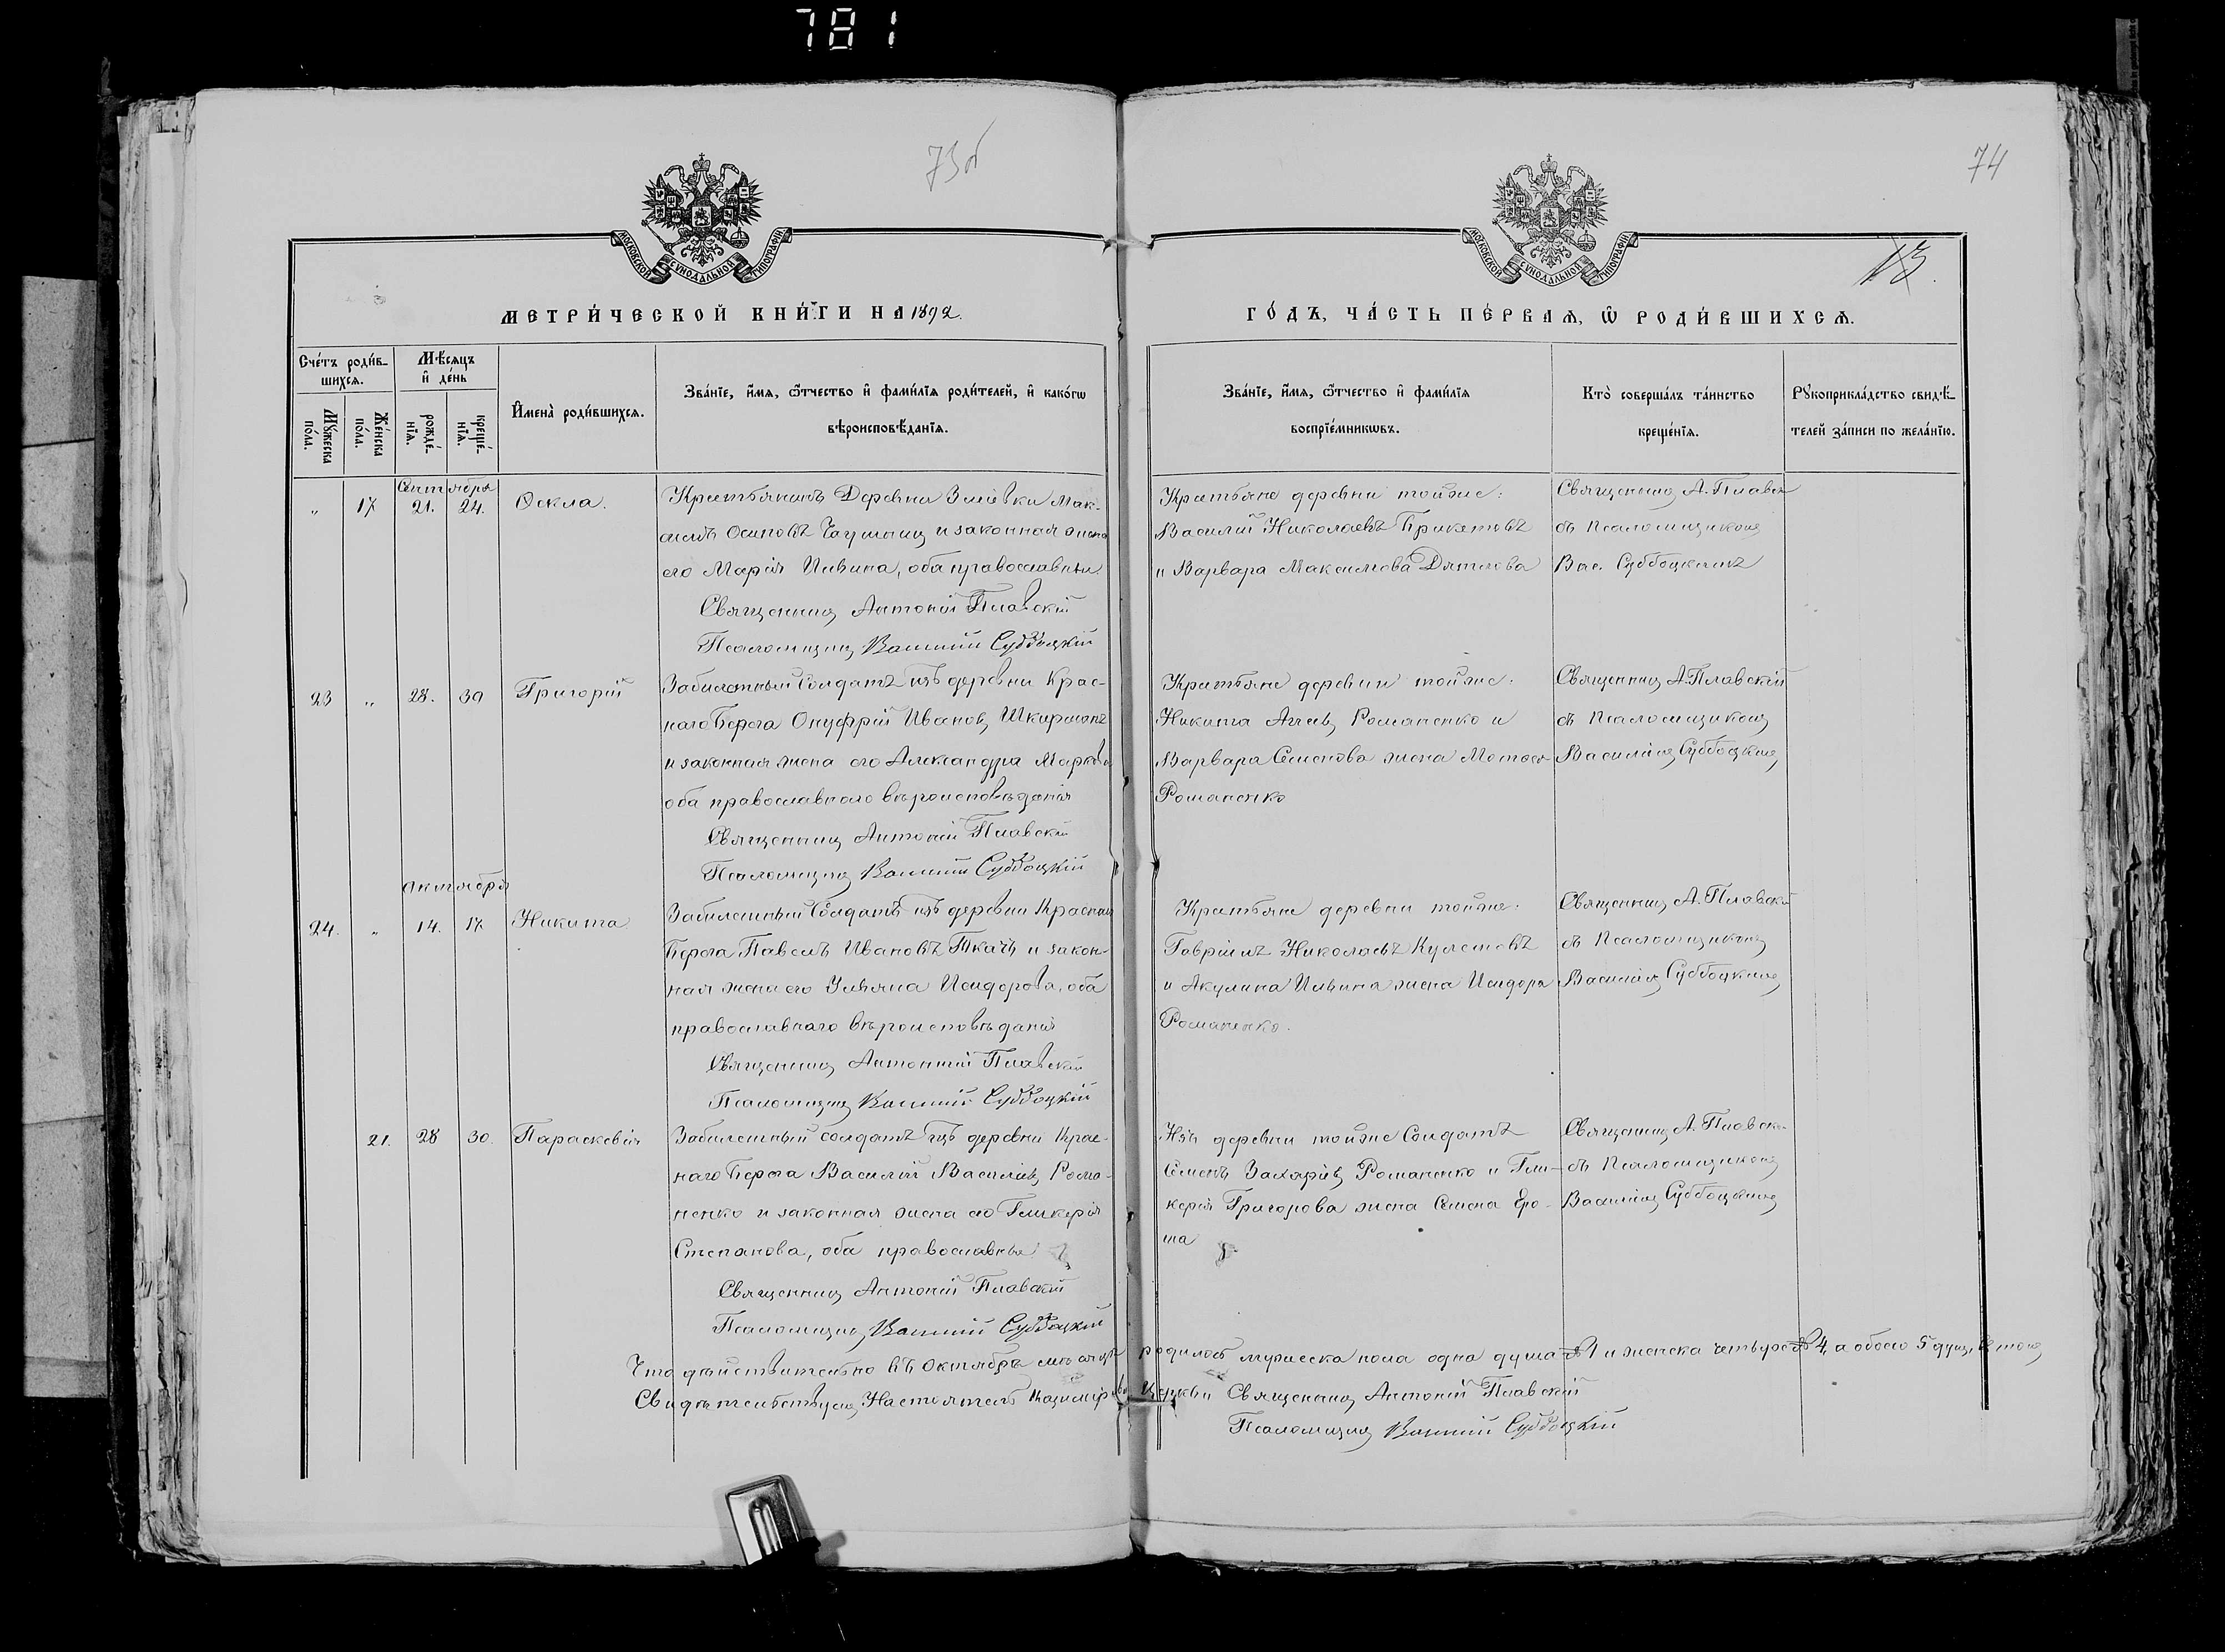 781
73об
74
13.
МОСКОВСКОЙ СѴНОДАЛЬНОЙ ТИПОГРАФІИ
МОСКОВСКОЙ СѴНОДАЛЬНОЙ ТИПОГРАФІИ
МЕТРИ́ЧЕСКОЙ КНИ́ГИ НА 1892.
ГО́ДЪ, ЧА́СТЬ ПЕ́РВАѦ, Ѡ҆ РОДИ́ВШИХСѦ.
Сче́тъ роди́в-
шихсѧ.
Мѣ́сѧцъ
и҆ де́нь
Мꙋ́жеска
по́ла.
Же́нска
по́ла.
рожде́-
нїѧ.
креще́-
нїѧ.
И҆мена̀ роди́вшихсѧ.
Зва́нїе, и҆́мѧ, ѻ҆́тчество и҆ фами́лїѧ роди́телей, и҆ како́гѡ
вѣроисповѣ́данїѧ.
Зва́нїе, и҆́мѧ, ѻ҆́тчество и҆ фами́лїѧ
воспрїе́мникѡвъ.
Кто̀ соверша́лъ та́инство
креще́нїѧ.
Рꙋкоприкла́дство свидѣ́-
телей за́писи по жела́нїю.
Сентября
„ 17 21. 24. Ѳекла.
Крестьянинъ Деревни Змѣевки Мак-
симъ Осиповъ и законная жена
его Марія Ильина, оба православные.
Священникъ Антоній Плавскій
Псаломщикъ Василій Субботскій
Крестьяне деревни тойже:
Василій Николаевъ
и Варвара Максимова
Священникъ А. Плавск
съ Псаломщикомъ
Вас. Субботскимъ
23 „ 28. 30 Григорій
Забилетный Солдатъ изъ деревни Крас-
наго Берега Онуфрій Ивановъ
и законная жена его Александра Маркова
оба православнаго вѣроисповѣданія
Священникъ Антоній Плавскій
Псаломщикъ Василій Субботскій
Крестьяне деревни тойже:
Никита Романенко и
Варвара Семенова жена
Романенко
Священникъ А. Плавскій
съ Псаломщикомъ
Василіемъ Субботскимъ
Октября
24. „ 14. 17. Никита
Забилетный Солдатъ изъ деревни Краснаго
Берега Павелъ Ивановъ Ткачъ и закон-
ная жена его Ульяна Исидорова, оба
православнаго вѣроисповѣданія
Священникъ Антоній Плавскій
Псаломщикъ Василій Субботскій
Крестьяне деревни тойже:
Гавріилъ Николаевъ
и Акулина Ильина жена Исидора
Романенко.
Священникъ А. Плавскій
съ Псаломщикомъ
Василіемъ Субботскимъ
21. 28 30. Параскевія
Забилетный солдатъ изъ деревни Крас-
наго Берега Василій Васильевъ Рома-
ненко и законная жена его Гликерія
Степанова, оба православные
Священникъ Антоній Плавскій
Псаломщикъ Василій Субботскій
Изъ деревни тойже Солдатъ
Семенъ Захарьевъ Романенко и Гли-
керія Григорова жена Семена Еро-
ша
Священникъ А. Плавск
съ Псаломщикомъ
Василіемъ Субботскимъ
Что дѣйствительно въ Октябрѣ мѣсяцѣ родилось мужеска пола одна душа 1 и женска четыре 4, а обоего 5 душъ, въ томъ
Свидѣтельствуемъ Настоятель Церкви Священникъ Антоній Плавскій
Псаломщикъ Василій Субботскій